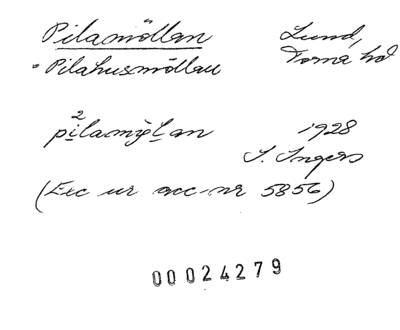 Pilamöllan Lund,
= Pilahusmöllan Torna hd
2
pilamỳlan 1928
I. Ingers
(Exc ur acc-nr 5856)
00024279